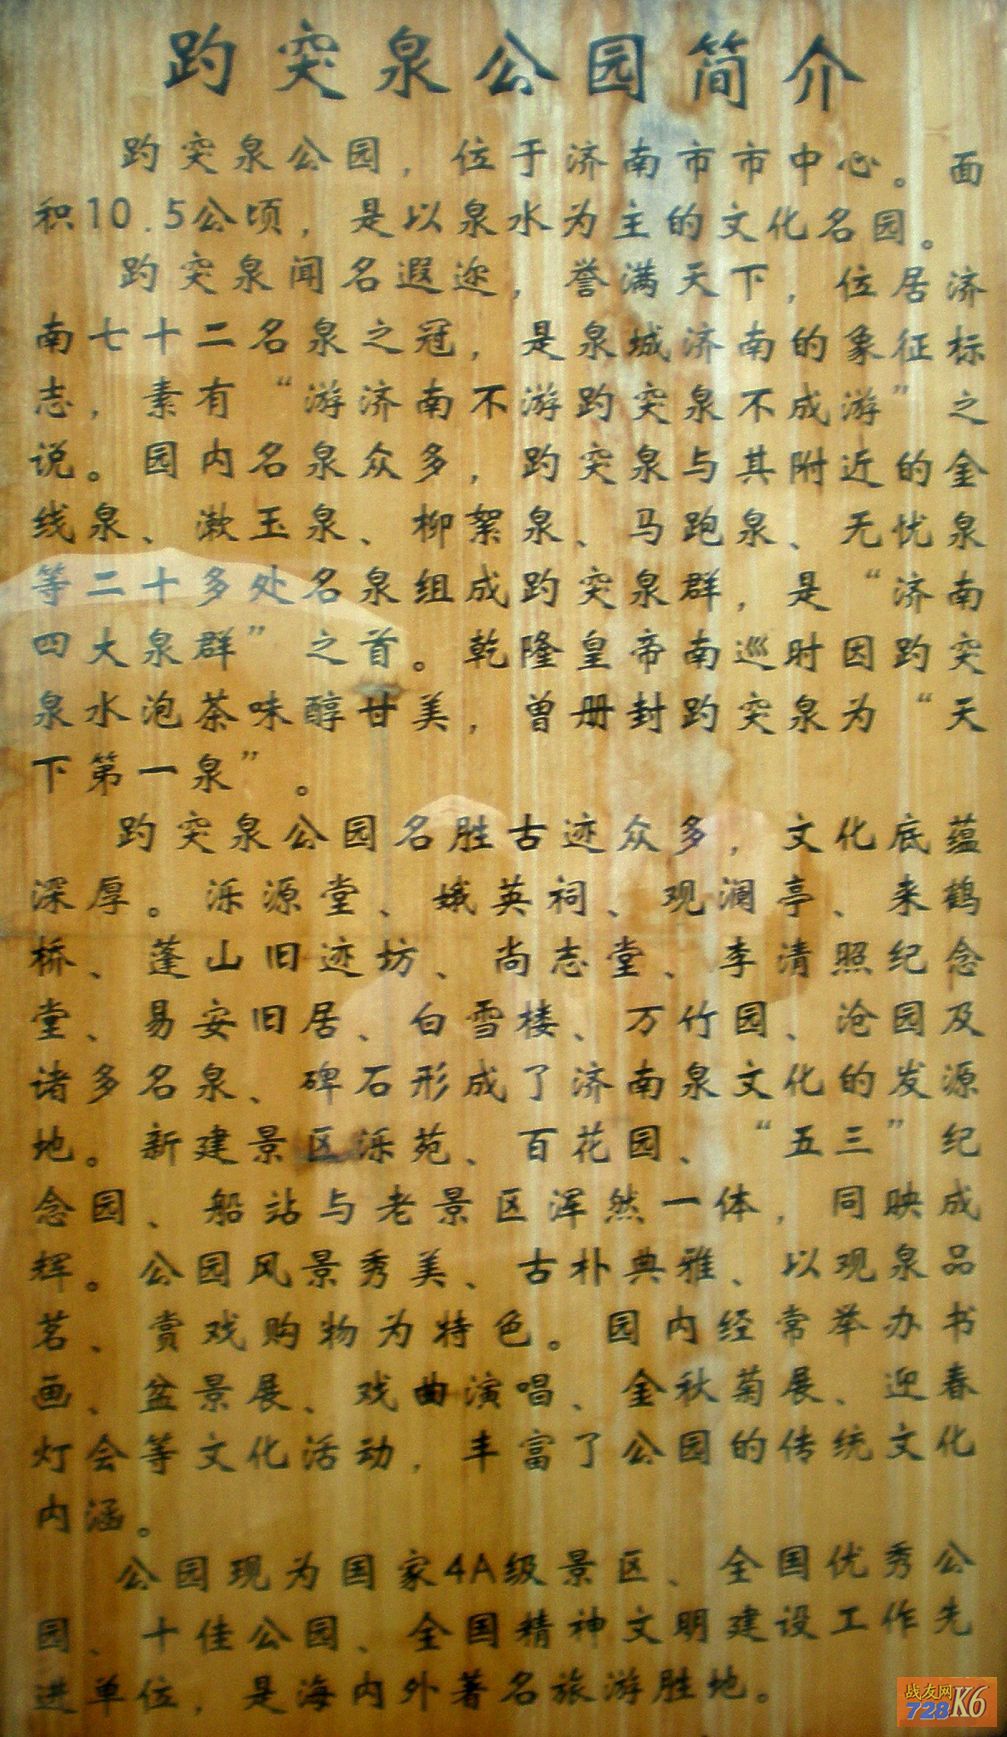 趵突泉公园简介
趵突泉公园，位于济南市市中心。面
积10.5公顷，是以泉水为主的文化名园。
趵突泉闻名遐迩，誉满天下，位居济
南七十二名泉之冠，是泉城济南的象征标
志，素有“游济南不游趵突泉不成游”之
说。园内名泉众多，趵突泉与其附近的金
线泉、漱玉泉、柳絮泉、马跑泉、无忧泉
等二十多处名泉组成趵突泉群，是“济南
四大泉群”之首。乾隆皇帝南巡时因趵突
泉水泡茶味醇甘美，曾册封趵突泉为“天
下第一泉”。
趵突泉公园名胜古迹众多，文化底蕴
深厚。泺源堂、娥英祠、观澜亭、来鹤
桥、蓬山旧迹坊、尚志堂、李清照纪念
堂、易安旧居、白雪楼、万竹园、沧园及
诸多名泉、碑石形成了济南泉文化的发源
地。新建景区泺苑、百花园、“五三”纪
念园、船站与老景区浑然一体，同映成
辉。公园风景秀美、古朴典雅、以观泉品
茗、赏戏购物为特色。园内经常举办书
画、盆景展、戏曲演唱、金秋菊展、迎春
灯会等文化活动，丰富了公园的传统文化
内涵。
公园现为国家4A级景区、全国优秀公
园、十佳公园、全国精神文明建设工作先
进单位，是海内外著名旅游胜地。
战友网
728K6